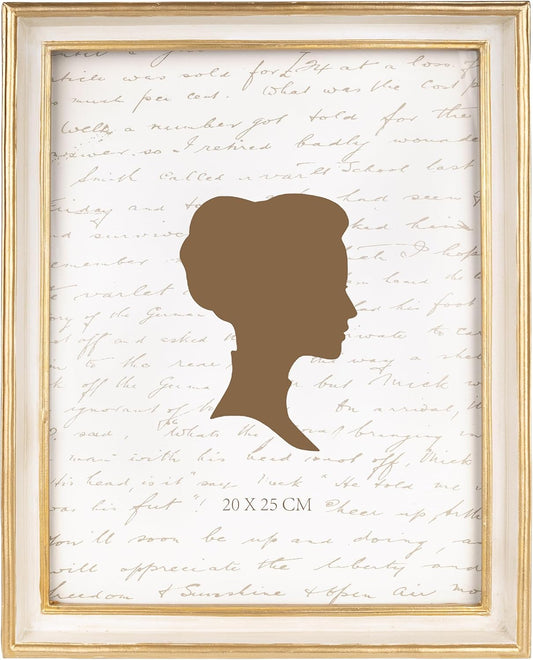 ber a
article was sold for £ 14 at a loss of
so much per cent. What was the cost p
Well, a number got told for the
answer. so I retired badly wounde
Smith called varlet School last
Friday and to had seen
and surviv ked him
remember I hope
e varlet land
ory of the German had his foot
off and asked private to car
to the rear the way a shell
k off the German but Mick w
ignorant of the In arrival, it
, said, "What's the bringing
man with his head shot off, Mick
His head, is it" say Mick "He told me i
was his fut"! Cheer up, Arth
20 X 25 CM
You'll soon be up and doing, a
will appreciate the liberty and
freedom & Sunshine & open air mo